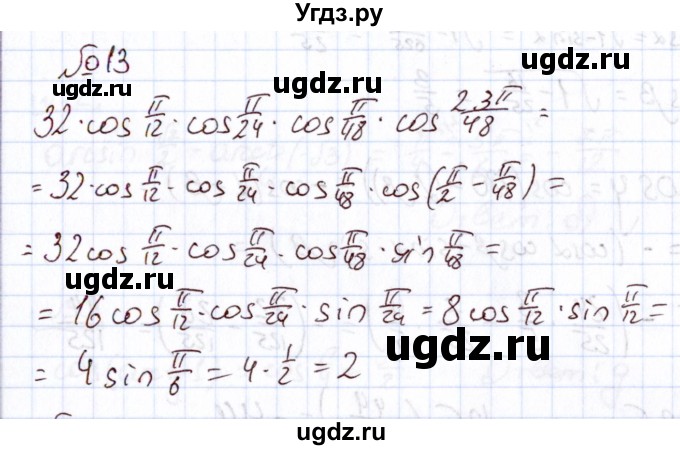 Угдз.ру
№13
32·cos π/12·cos π/24·cos π/48·cos 23π/48 =
ugdz.ru ugdz.ru
= 32·cos π/12·cos π/24·cos π/48·cos(π/2 − π/48) =
= 32cos π/12·cos π/24·cos π/48·sin π/48 =
ugdz.ru
= 16cos π/12·cos π/24·sin π/24 = 8cos π/12·sin π/12 =
ugdz.ru
= 4sin π/6 = 4·1/2 = 2
ugdz.ru